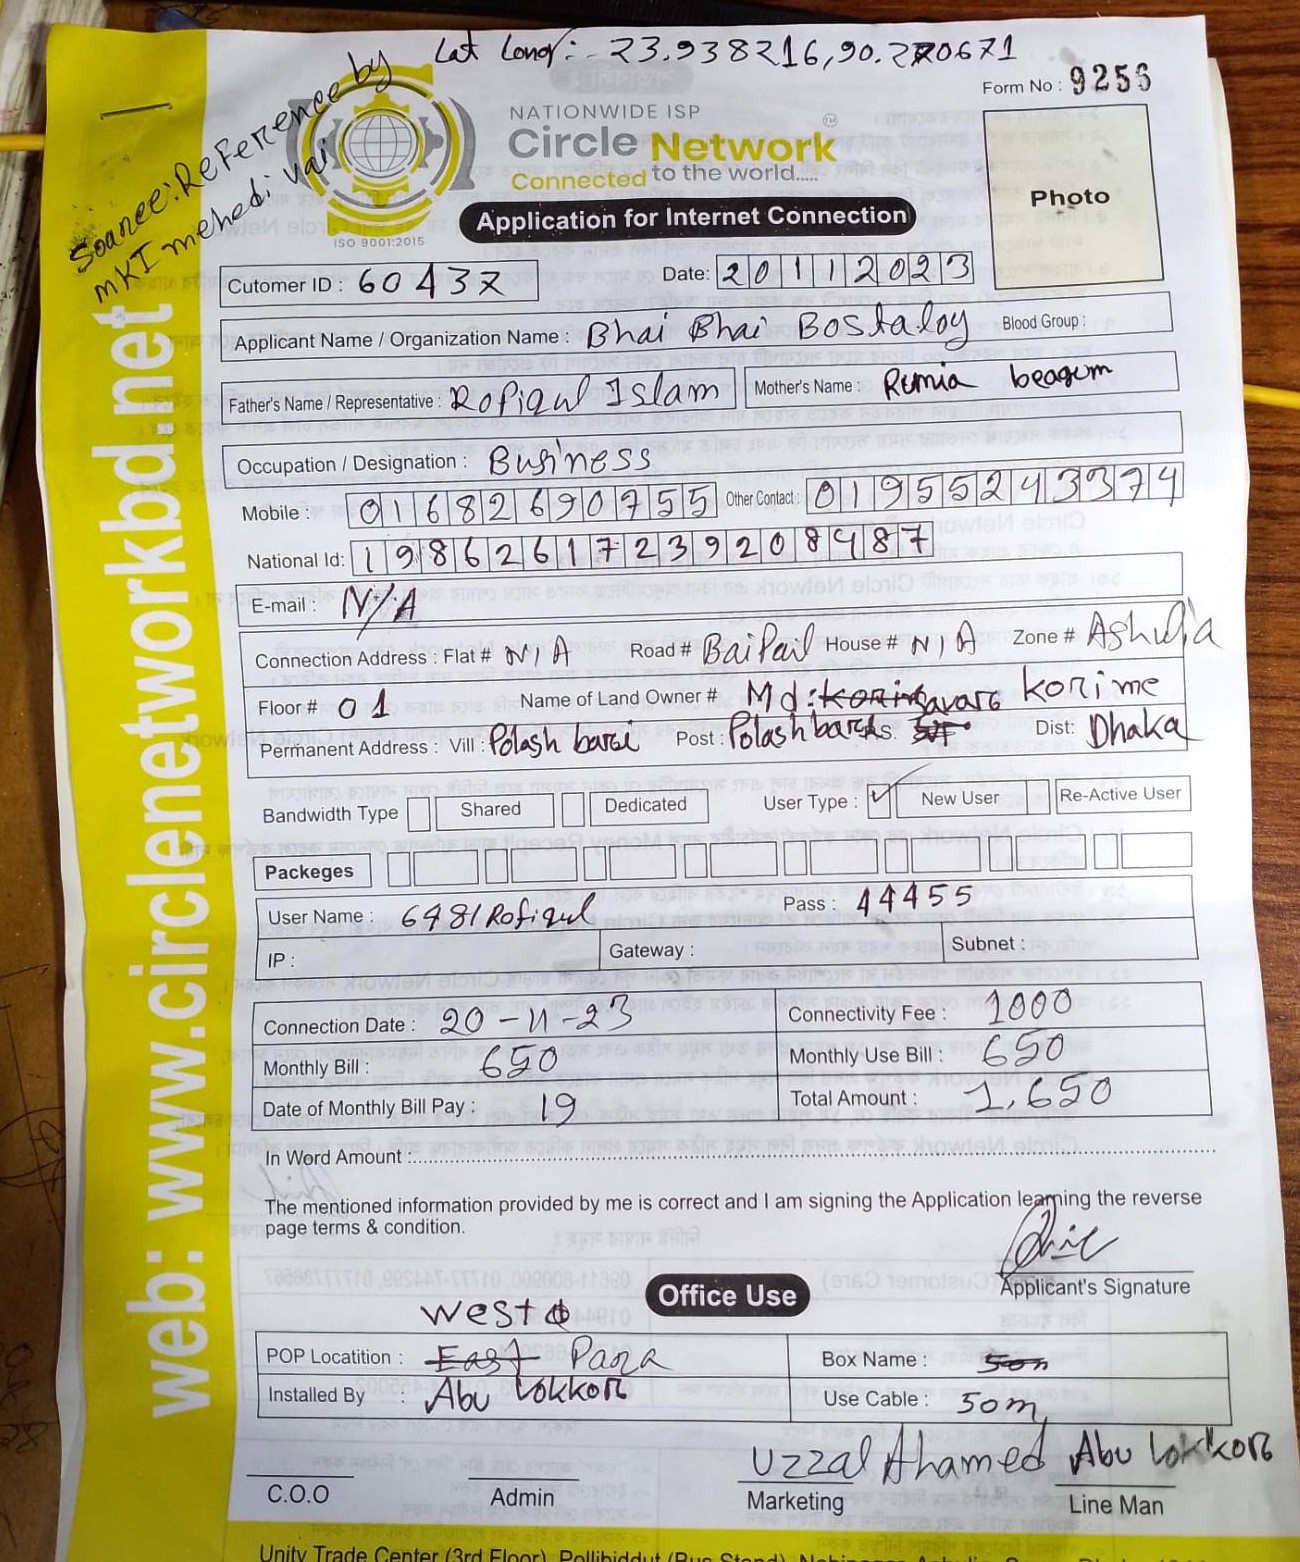 Lat Long:- 23.938216,90.270671
Source:Reference by
MKT mehedi vai
Form No : 9256
NATIONWIDE ISP
Circle Network
TM
Connected to the world.....
ISO 9001:2015
Application for Internet Connection
Photo
Cutomer ID : 60437
Date: 20112023
Applicant Name / Organization Name : Bhai Bhai Bostaloy Blood Group :
Father's Name / Representative : Rofiqul Islam Mother's Name : Rumia beagum
Occupation / Designation : Business
Mobile : 01682690755 Other Contact : 01955243374
National Id: 19862617239208487
E-mail : N/A
Connection Address : Flat # N/A Road # Baipail House # N/A Zone # Ashulia
Floor # 01 Name of Land Owner # Md: korime
Permanent Address : Vill : Polash bari Post : Polash bari P.S. Savar Dist: Dhaka
Bandwidth Type Shared Dedicated User Type : ✓ New User Re-Active User
Packeges
User Name : 6481Rofiqul Pass : 44455
IP : Gateway : Subnet :
Connection Date : 20-11-23 Connectivity Fee : 1000
Monthly Bill : 650 Monthly Use Bill : 650
Date of Monthly Bill Pay : 19 Total Amount : 1,650
In Word Amount :
The mentioned information provided by me is correct and I am signing the Application learning the reverse
page terms & condition.
Applicant's Signature
Office Use
West
POP Locatition : East Para Box Name : 50m
Installed By : Abu Lokkor Use Cable : 50m
Uzzal Ahamed Abu Lokkor
C.O.O Admin Marketing Line Man
web: www.circlenetworkbd.net